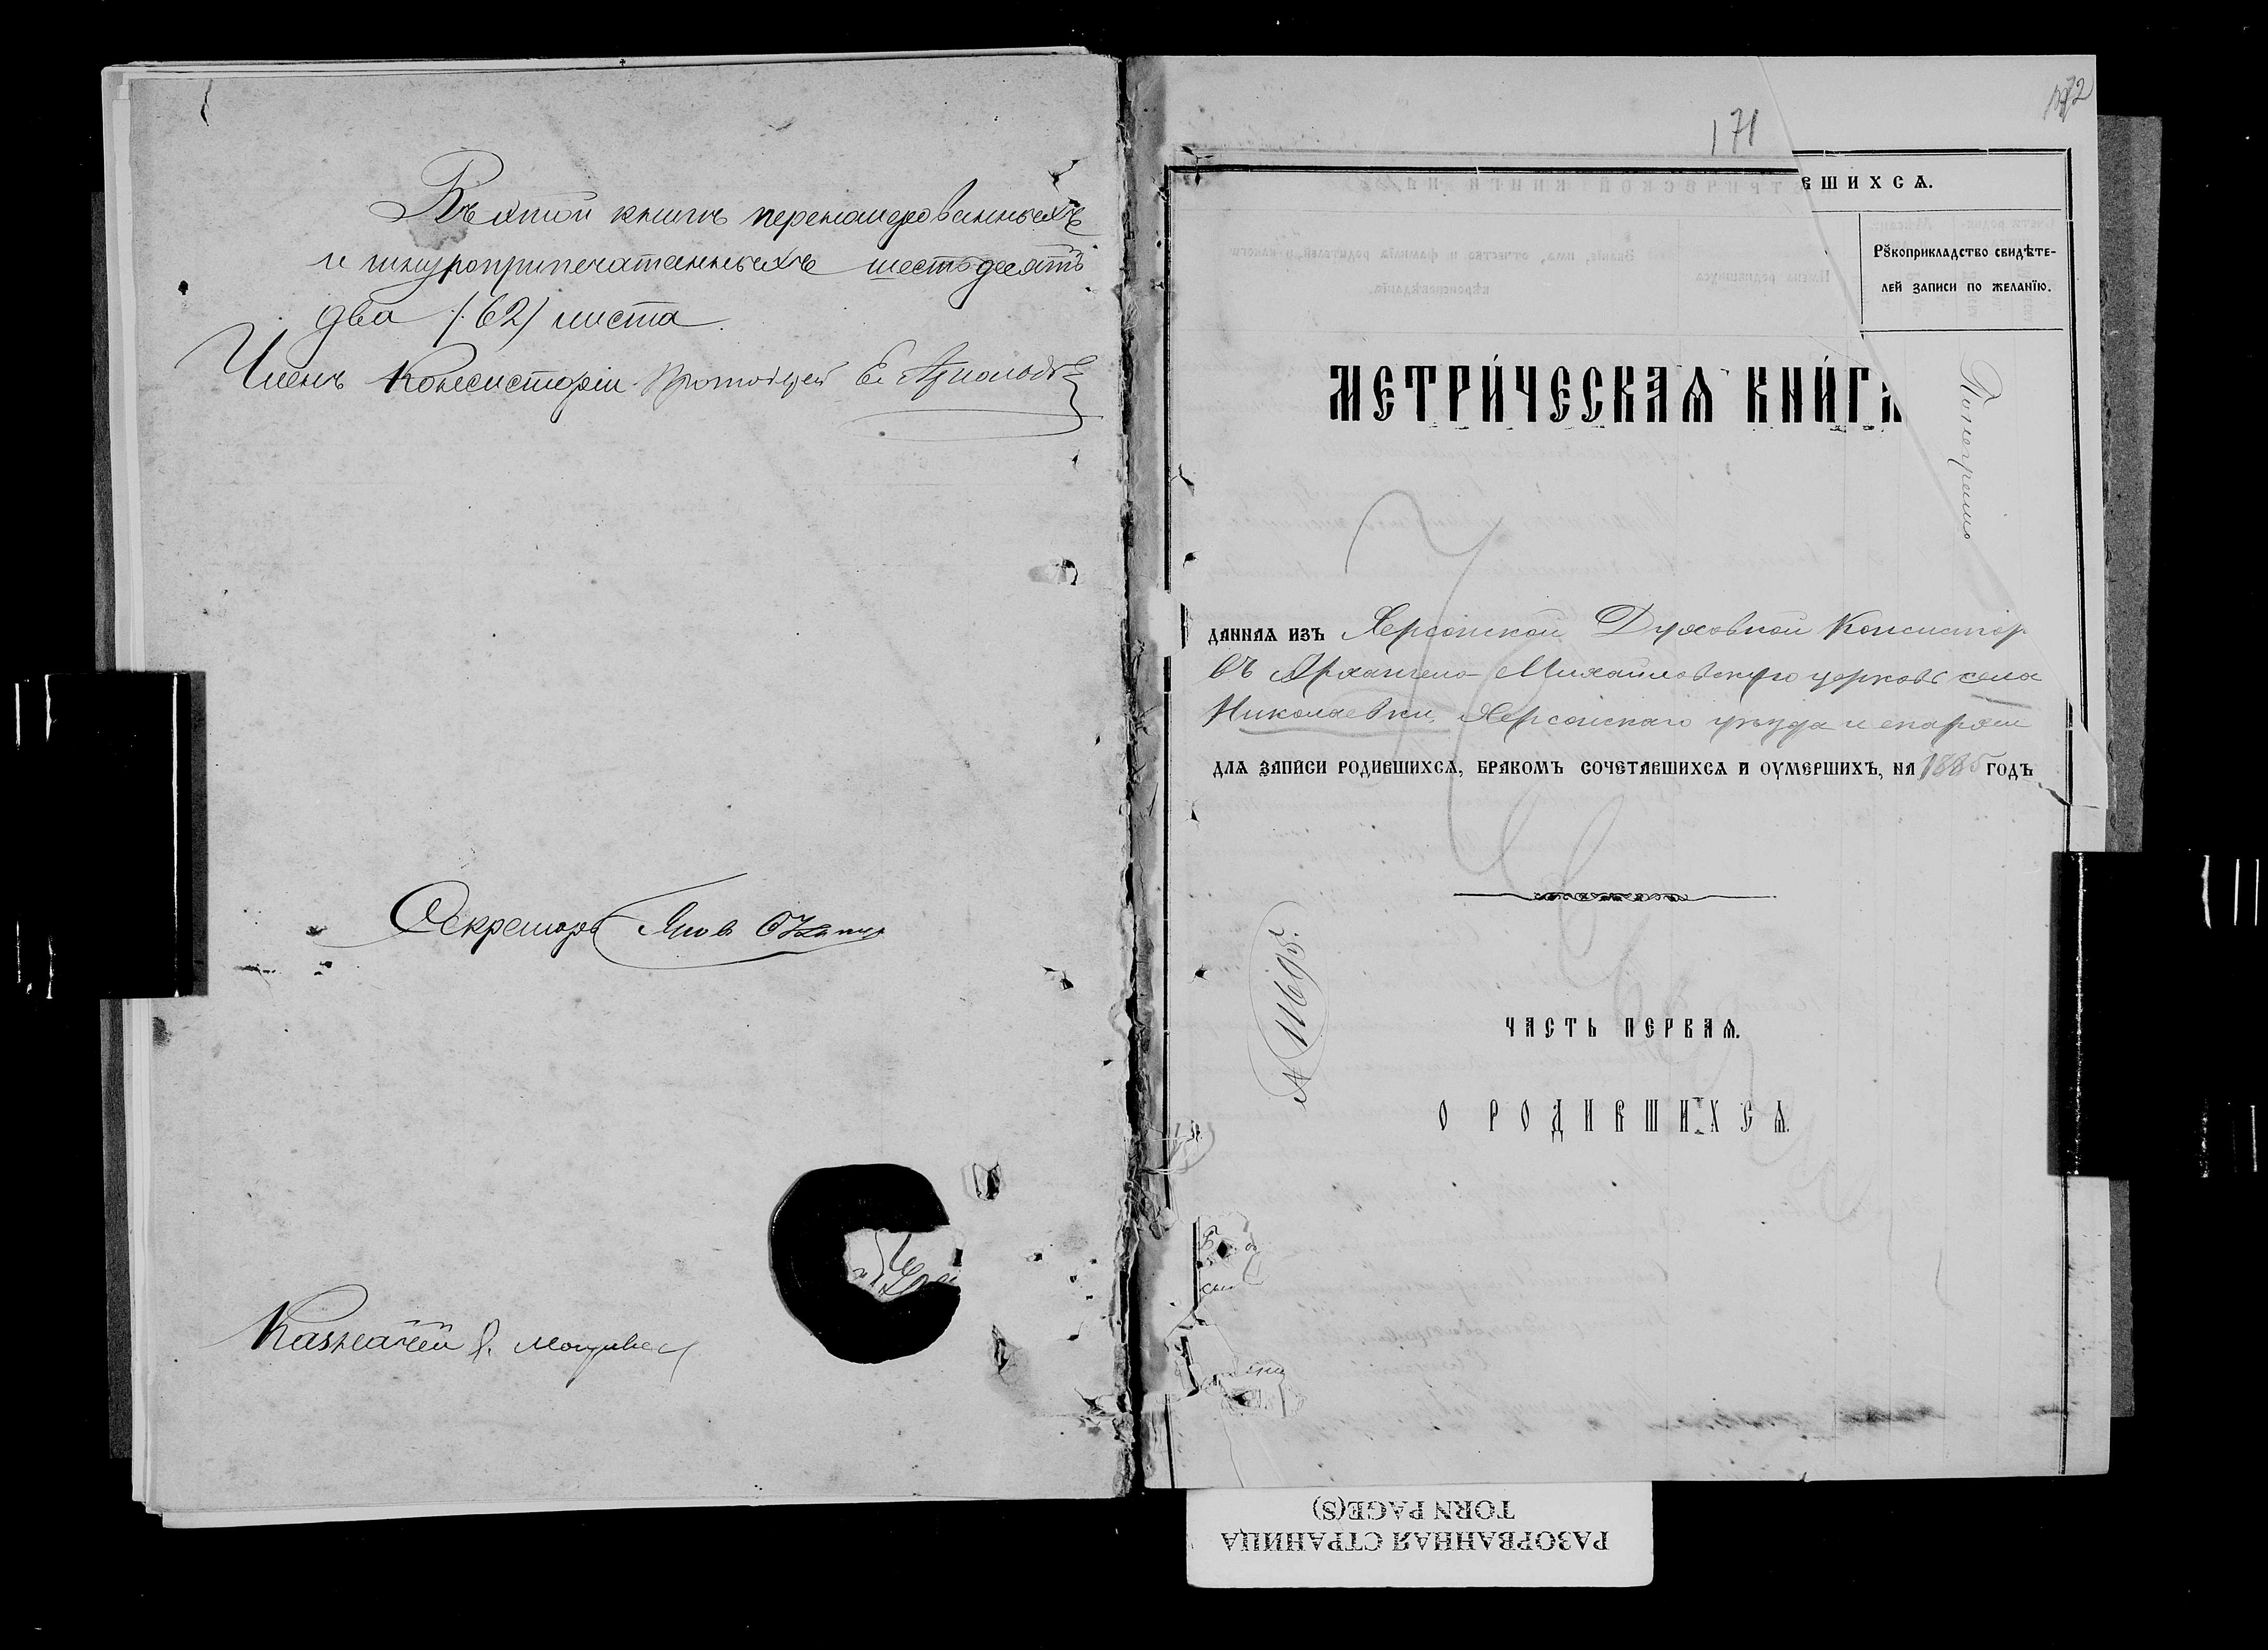 Въ этой книгѣ перенумерованныхъ
и шнуроприпечатанныхъ шестьдесятъ
два /62/ листа.
Членъ Консисторіи Протоіерей
Секретарь
Казначей
171
172
ВШИХСѦ.
Рꙋкоприкладство свидѣте-
лей записи по желанїю.
МЕТРИ́ЧЕСКАѦ КНИ́ГА
ДАННАѦ ИЗЪ Херсонской Духовной Консистор
въ Архангело-Михайловскую церковь села
Николаевки, Херсонскаго уѣзда и епархіи
ДЛѦ ЗАПИСИ РОДИВШИХСѦ, БРАКОМЪ СОЧЕТАВШИХСѦ И ОУМЕРШИХЪ, НА 1885 ГОДЪ
№ 11695.
ЧАСТЬ ПЕРВАѦ.
О РОДИВШИХСѦ.
РАЗОРВАННАЯ СТРАНИЦА
TORN PAGE(S)